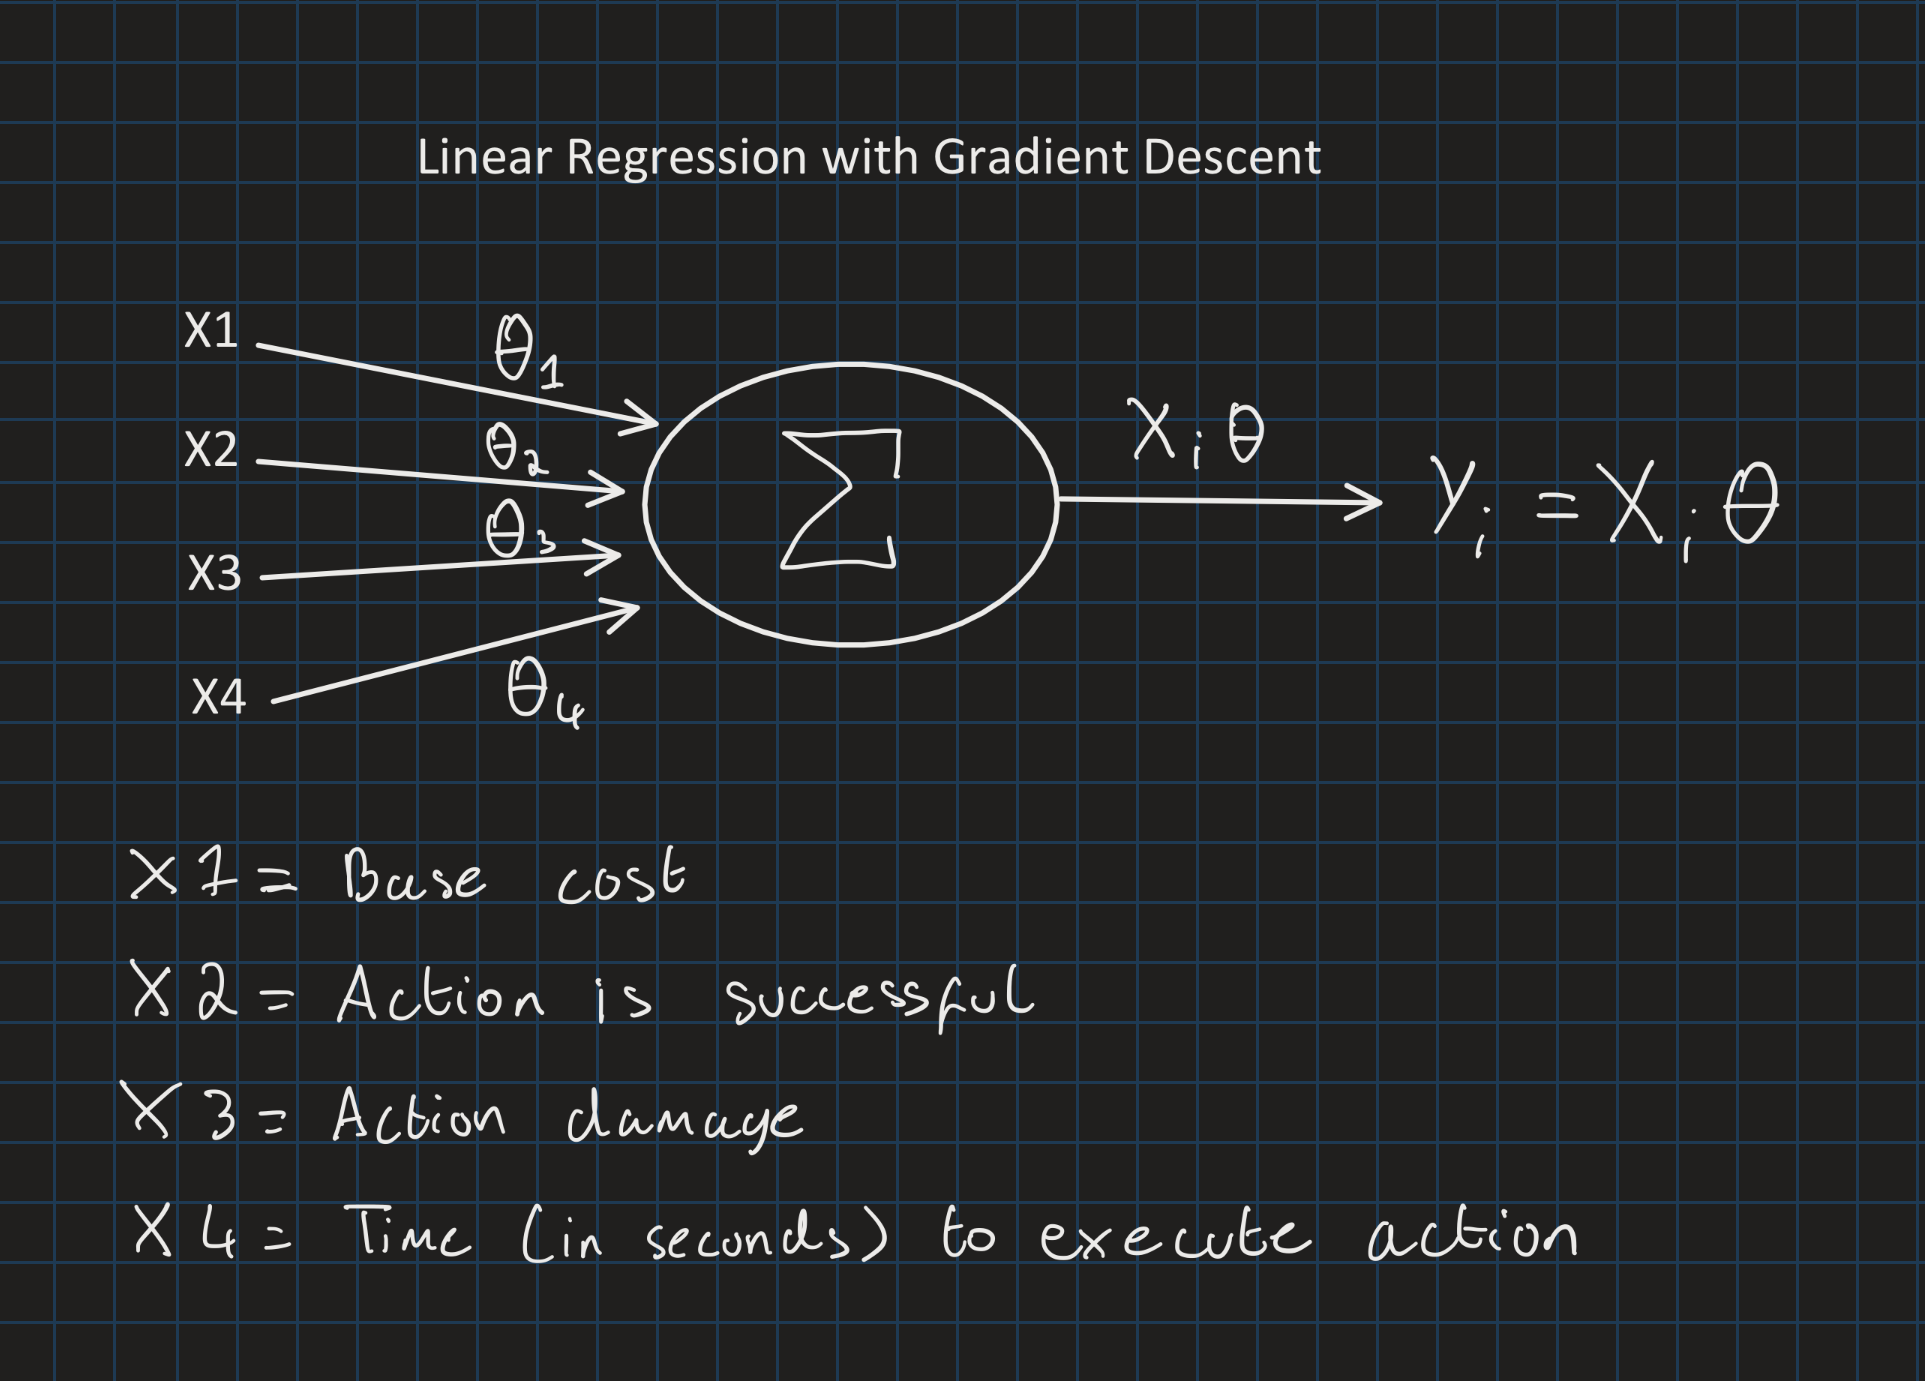 Linear Regression with Gradient Descent
X1
θ1
X2
θ2
θ3
X3
X4
θ4
Σ
Xiθ
Yi = Xiθ
X1 = Base cost
X2 = Action is successful
X3 = Action damage
X4 = Time (in seconds) to execute action